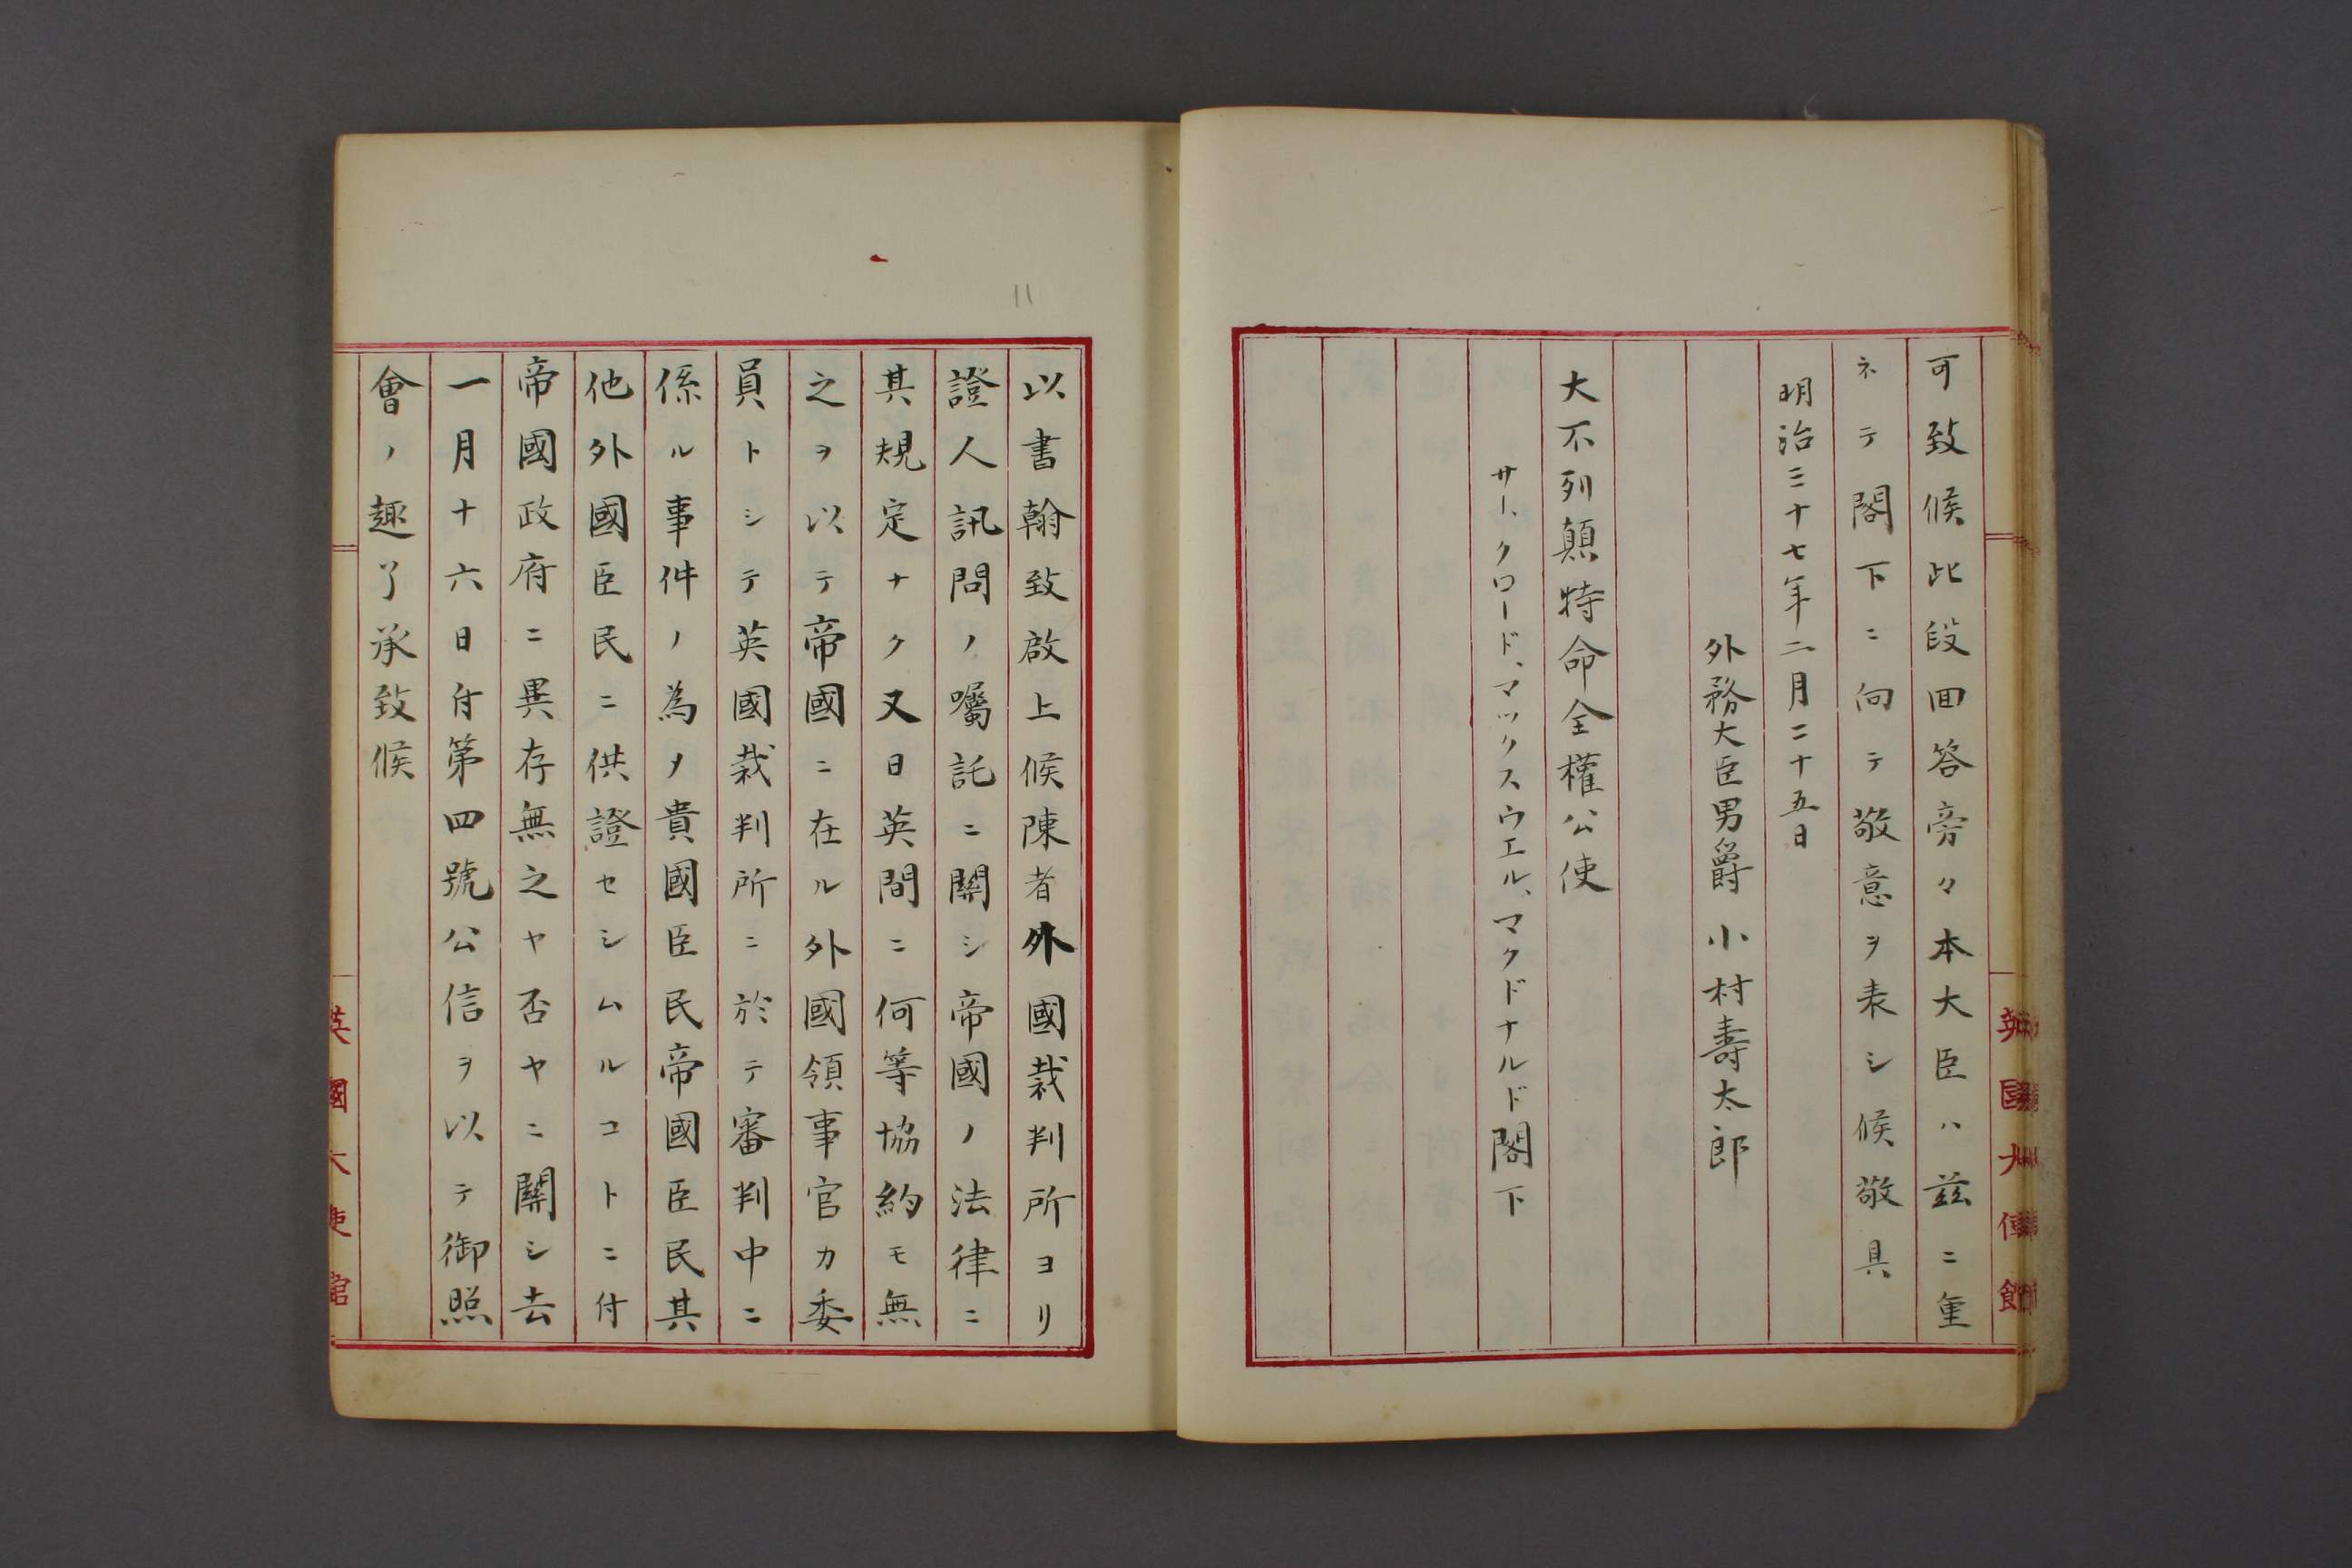 可致候此段回答旁々本大臣ハ茲ニ重
ネテ閣下ニ向テ敬意ヲ表シ候敬具
明治三十七年二月二十五日
外務大臣男爵小村壽太郎
大不列顛特命全權公使
サー、クロード、マックスウエル、マクドナルド閣下
11
以書翰致啟上候陳者外國裁判所ヨリ
證人訊問ノ囑託ニ關シ帝國ノ法律ニ
其規定ナク又日英間ニ何等協約モ無
之ヲ以テ帝國ニ在ル外國領事官カ委
員トシテ英國裁判所ニ於テ審判中ニ
係ル事件ノ為ノ貴國臣民帝國臣民其
他外國臣民ニ供證セシムルコトニ付
帝國政府ニ異存無之ヤ否ヤニ關シ去
一月十六日付第四號公信ヲ以テ御照
會ノ趣了承致候
英國大使館